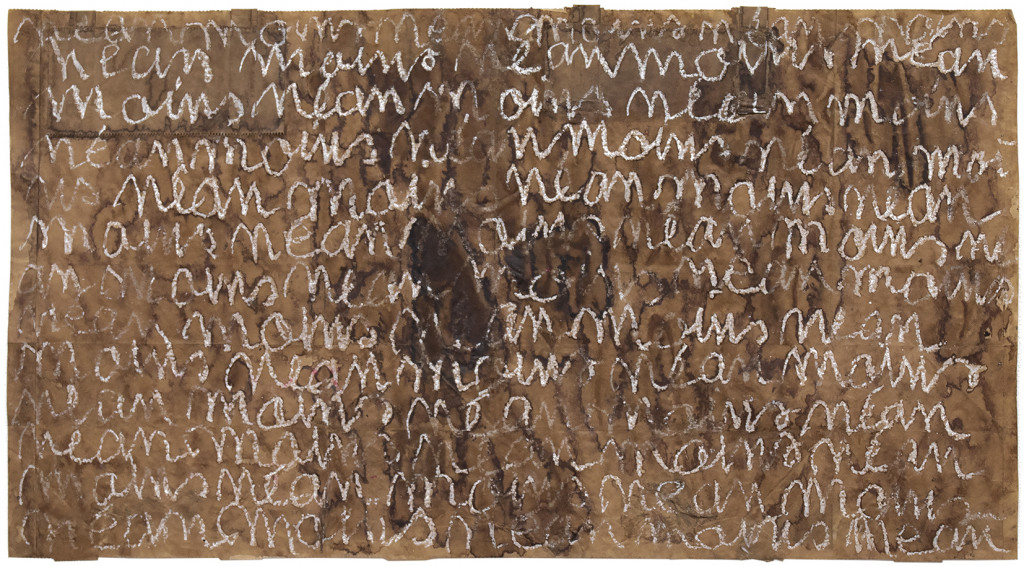 nean moins nean moins nean moins
nean moins nean moins nean
moins nean moins nean moins
nean moins nean moins nean moi
ns nean moins nean moins nean
moins nean moins nean moins n
ean moins nean moins nean moins
nean moins nean moins nean
moins nean moins nean moins
nean moins nean moins nean
nean moins nean moins nean
moins nean moins nean moins
nean moins nean moins nean